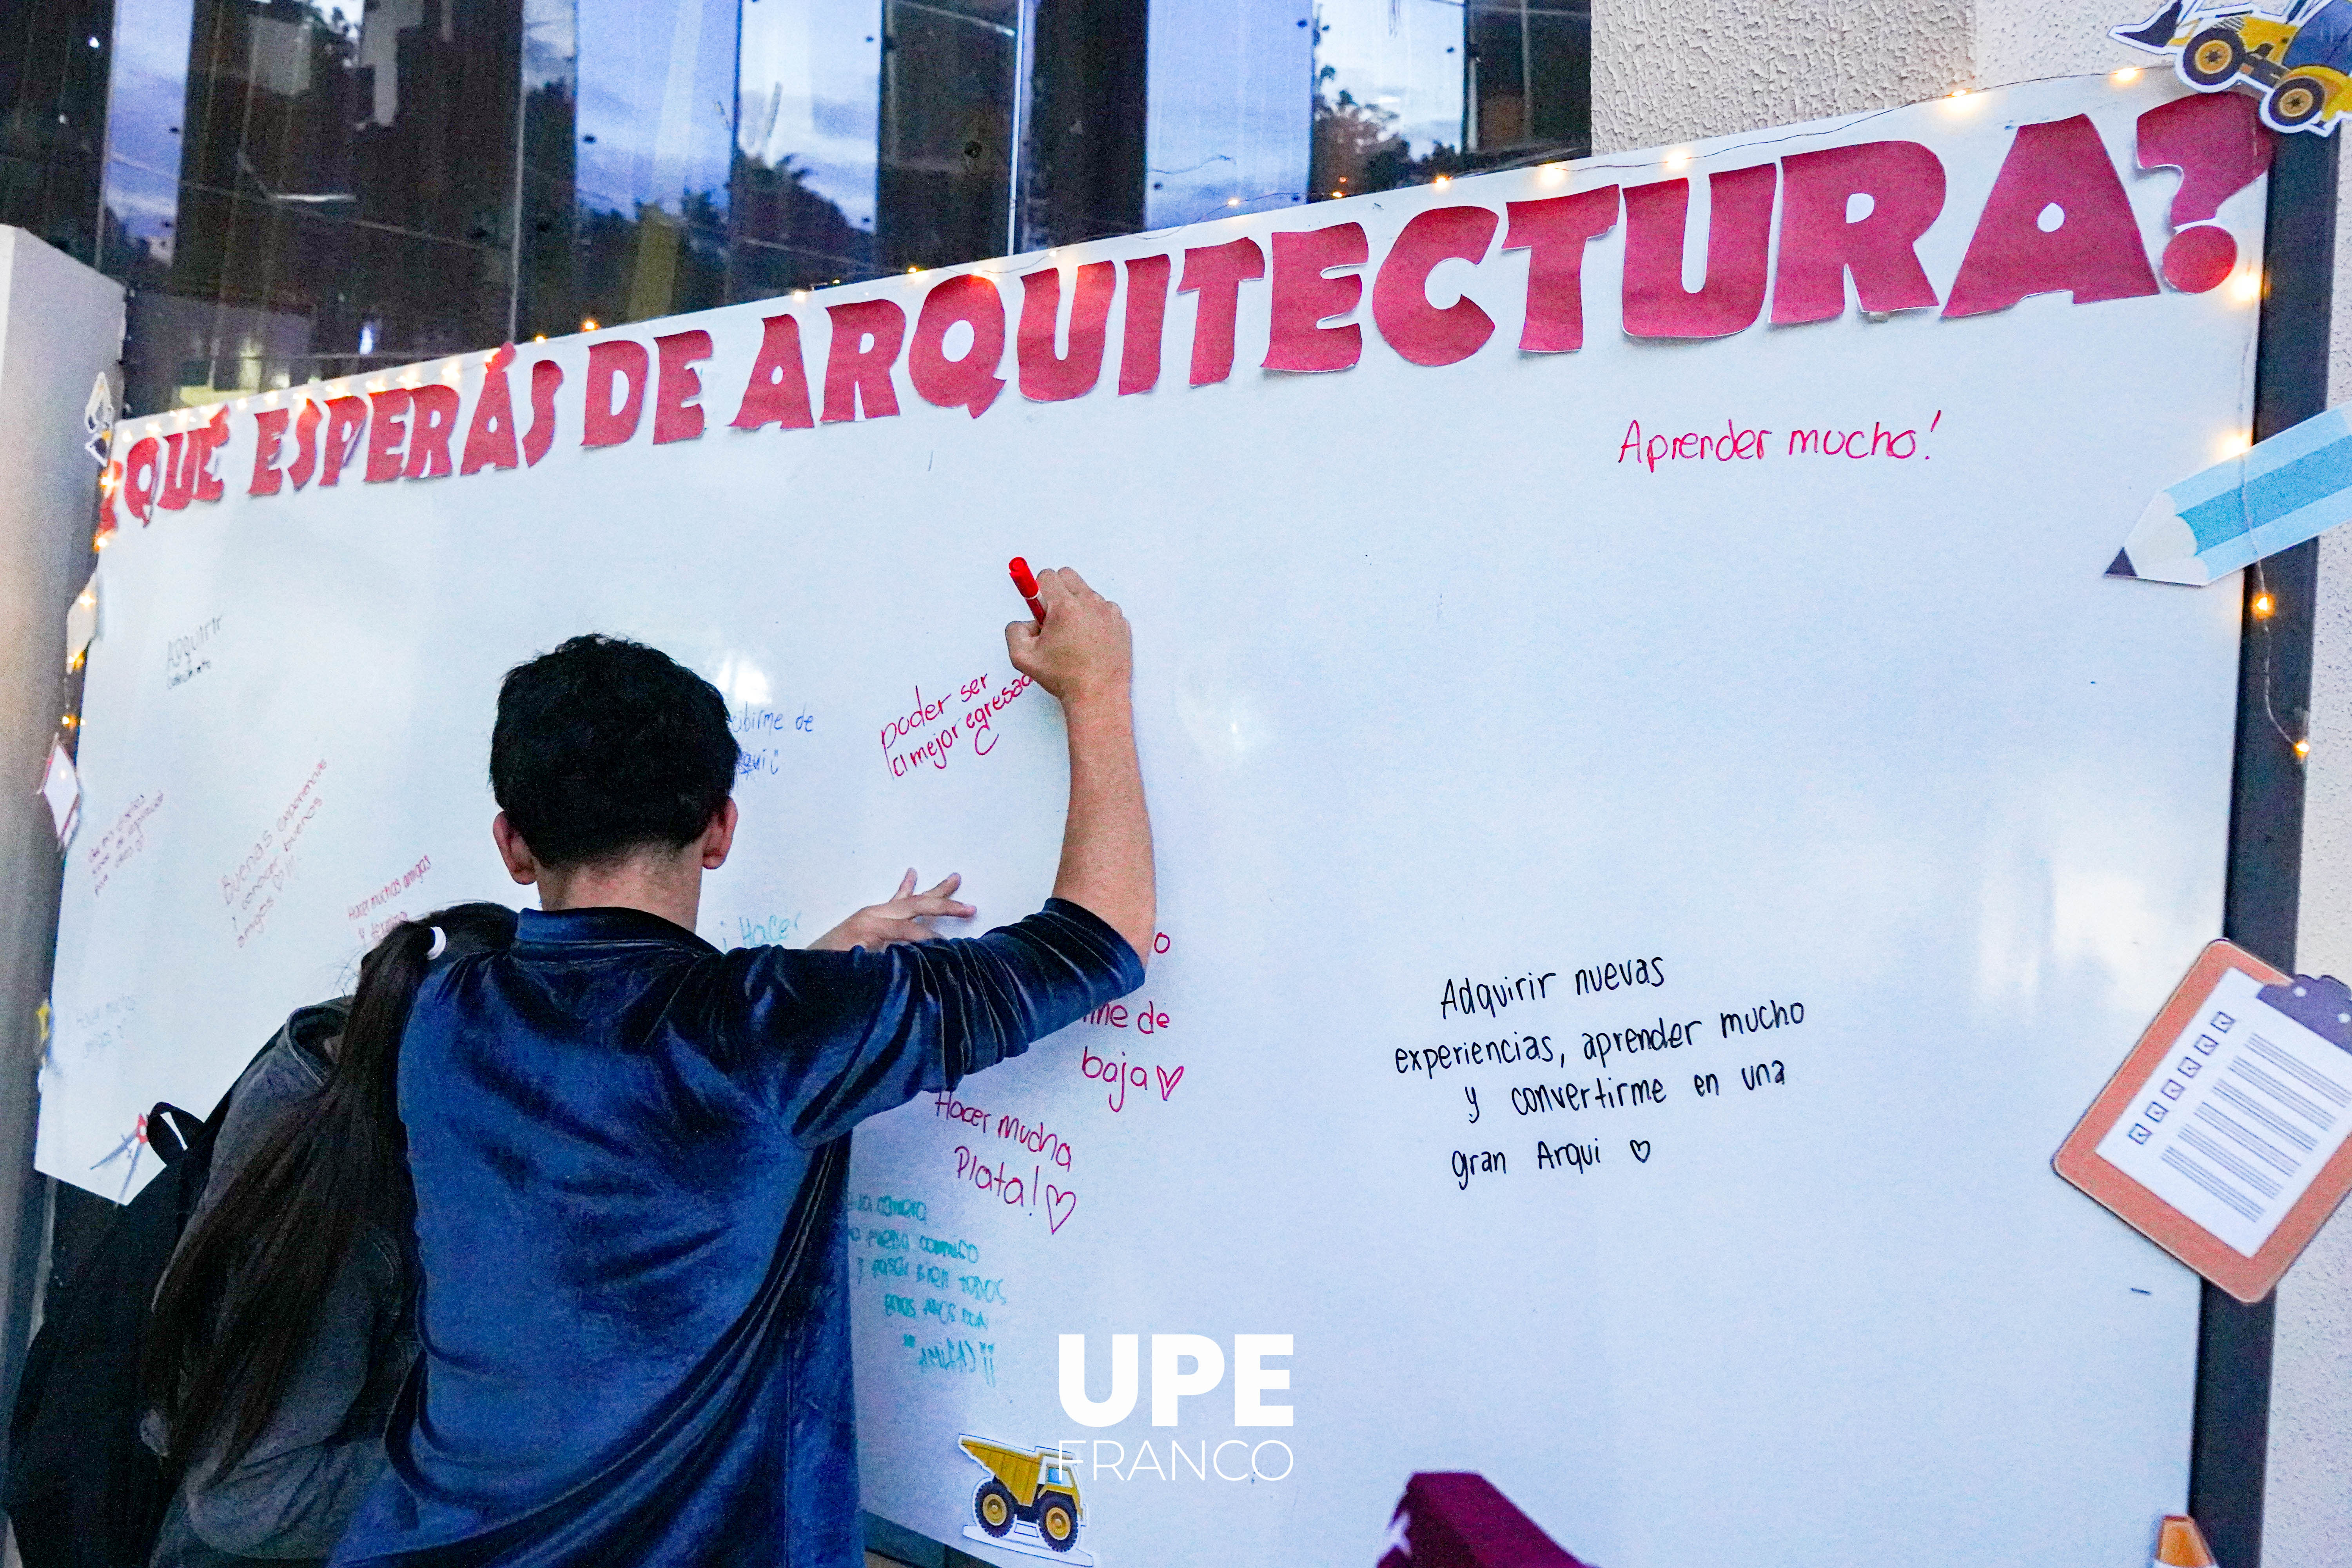 ¿QUÉ ESPERÁS DE ARQUITECTURA?
Aprender mucho!
Adquirir
poder ser
el mejor egresado
cibirme de
Buenas experiencias
y conocer buenos
amigos
Hacer muchas amigas
y
¡Hacer
o
me de
baja
Hacer mucha
Plata!
la
conmigo
y pasar bien TODOS
Adquirir nuevas
experiencias, aprender mucho
y convertirme en una
gran Arqui
UPE
FRANCO